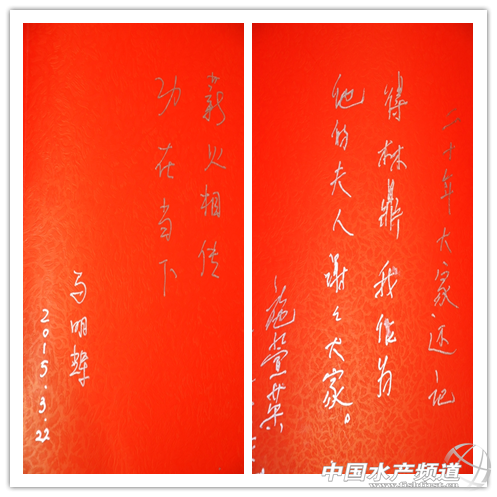 薪火相传
功在当下
马明辉
2015.3.22
二十年大家还记
得林鼎我作为
他的夫人谢谢大家。
中国水产频道